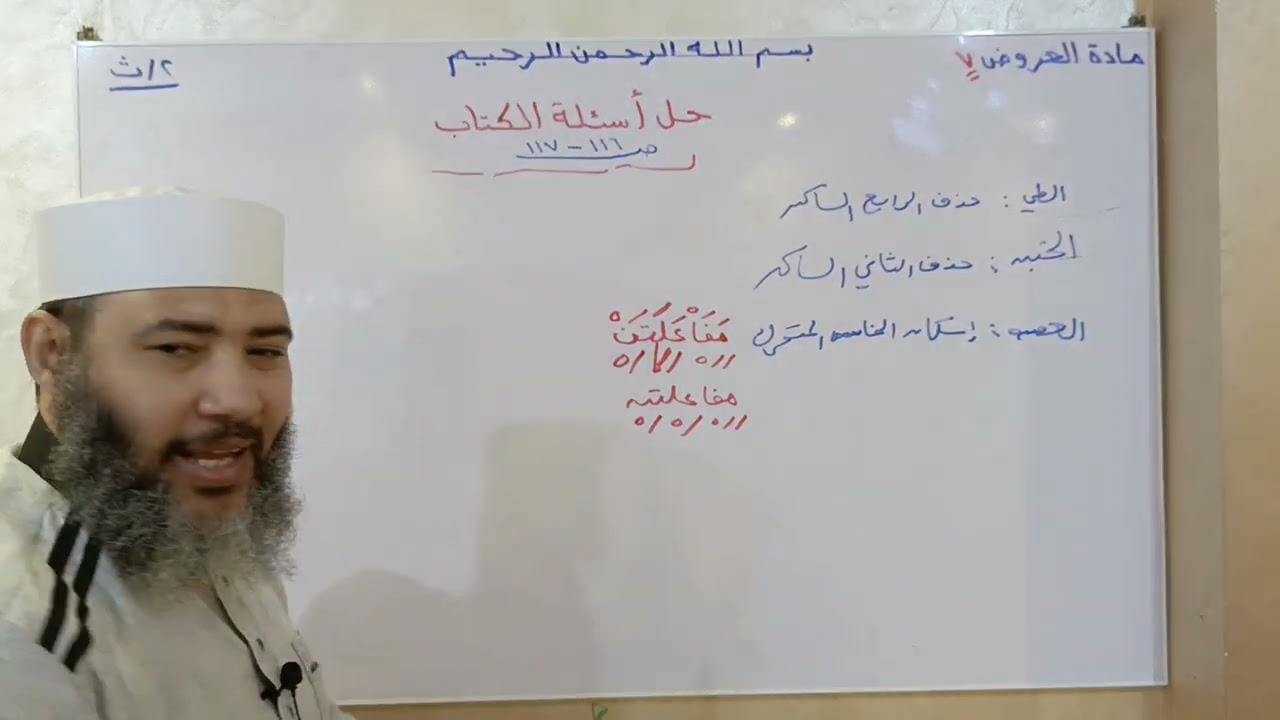 مادة العروض ٧
بسم الله الرحمن الرحيم
٢/ث
حل أسئلة الكتاب
صـ ١١٦ - ١١٧
الطي : حذف الرابع الساكن
الخبن : حذف الثاني الساكن
العصب : إسكان الخامس المتحرك مُفَاعَلَتُنْ
مفاعلتن
//٥/٥/٥